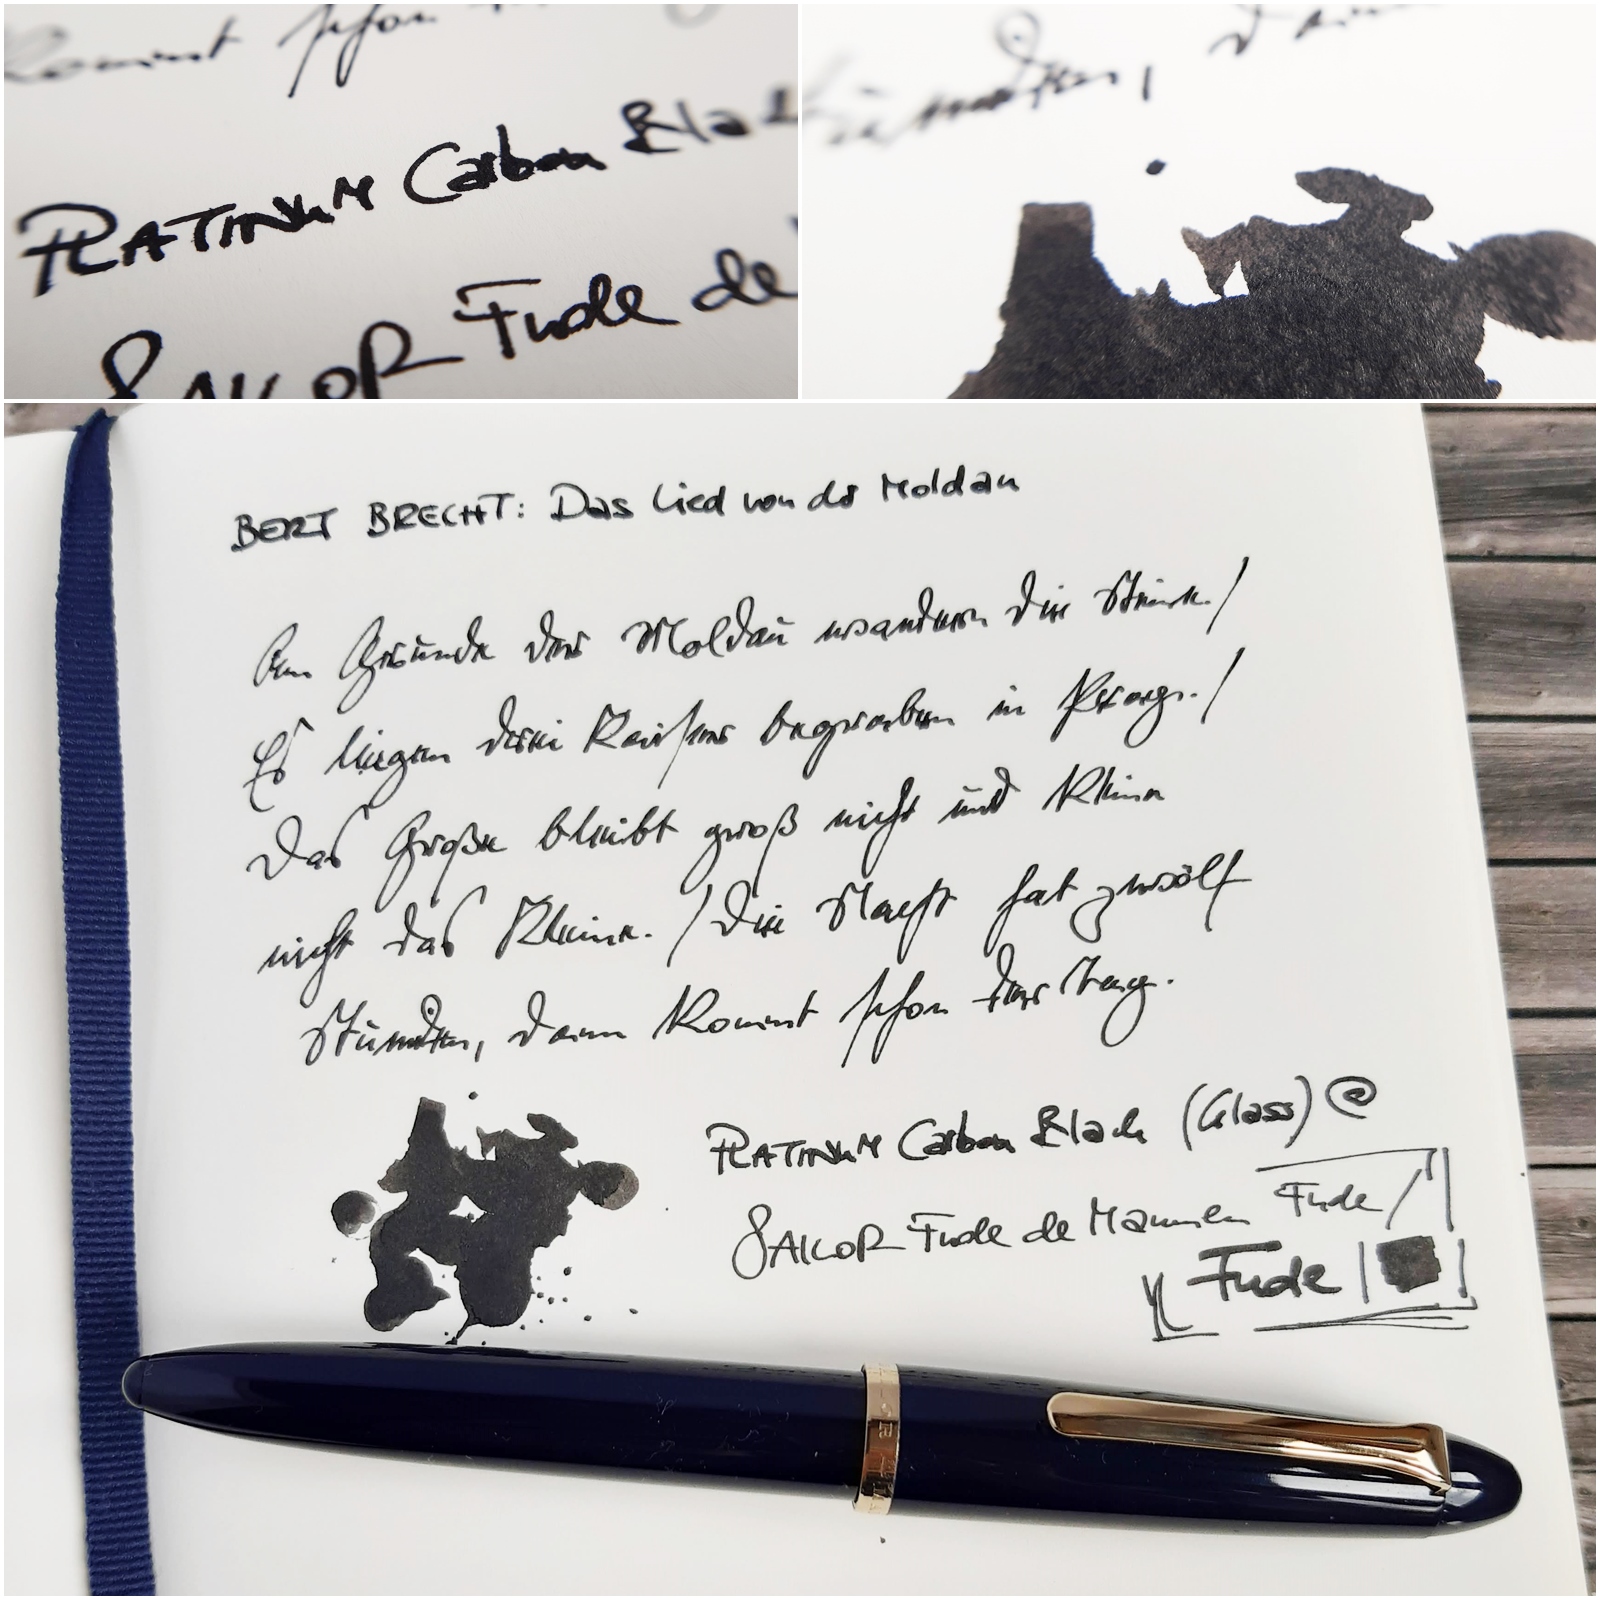 kommt schon
PLATINUM Carbon Black
SAILOR Fude de
Stunden, dann
BERT BRECHT: Das Lied von der Moldau
Am Grunde der Moldau wandern die Steine./
Es liegen drei Kaiser begraben in Prag./
Das Große bleibt groß nicht und klein
nicht das Kleine. / Die Nacht hat zwölf
Stunden, dann kommt schon der Tag.
PLATINUM Carbon Black (Glass) @
SAILOR Fude de Mannen Fude /
Fude